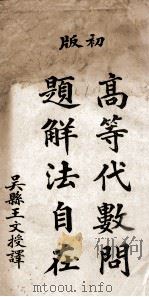 初版
高等代數問
題解法自在
吳縣王文授譯
mtoou.info